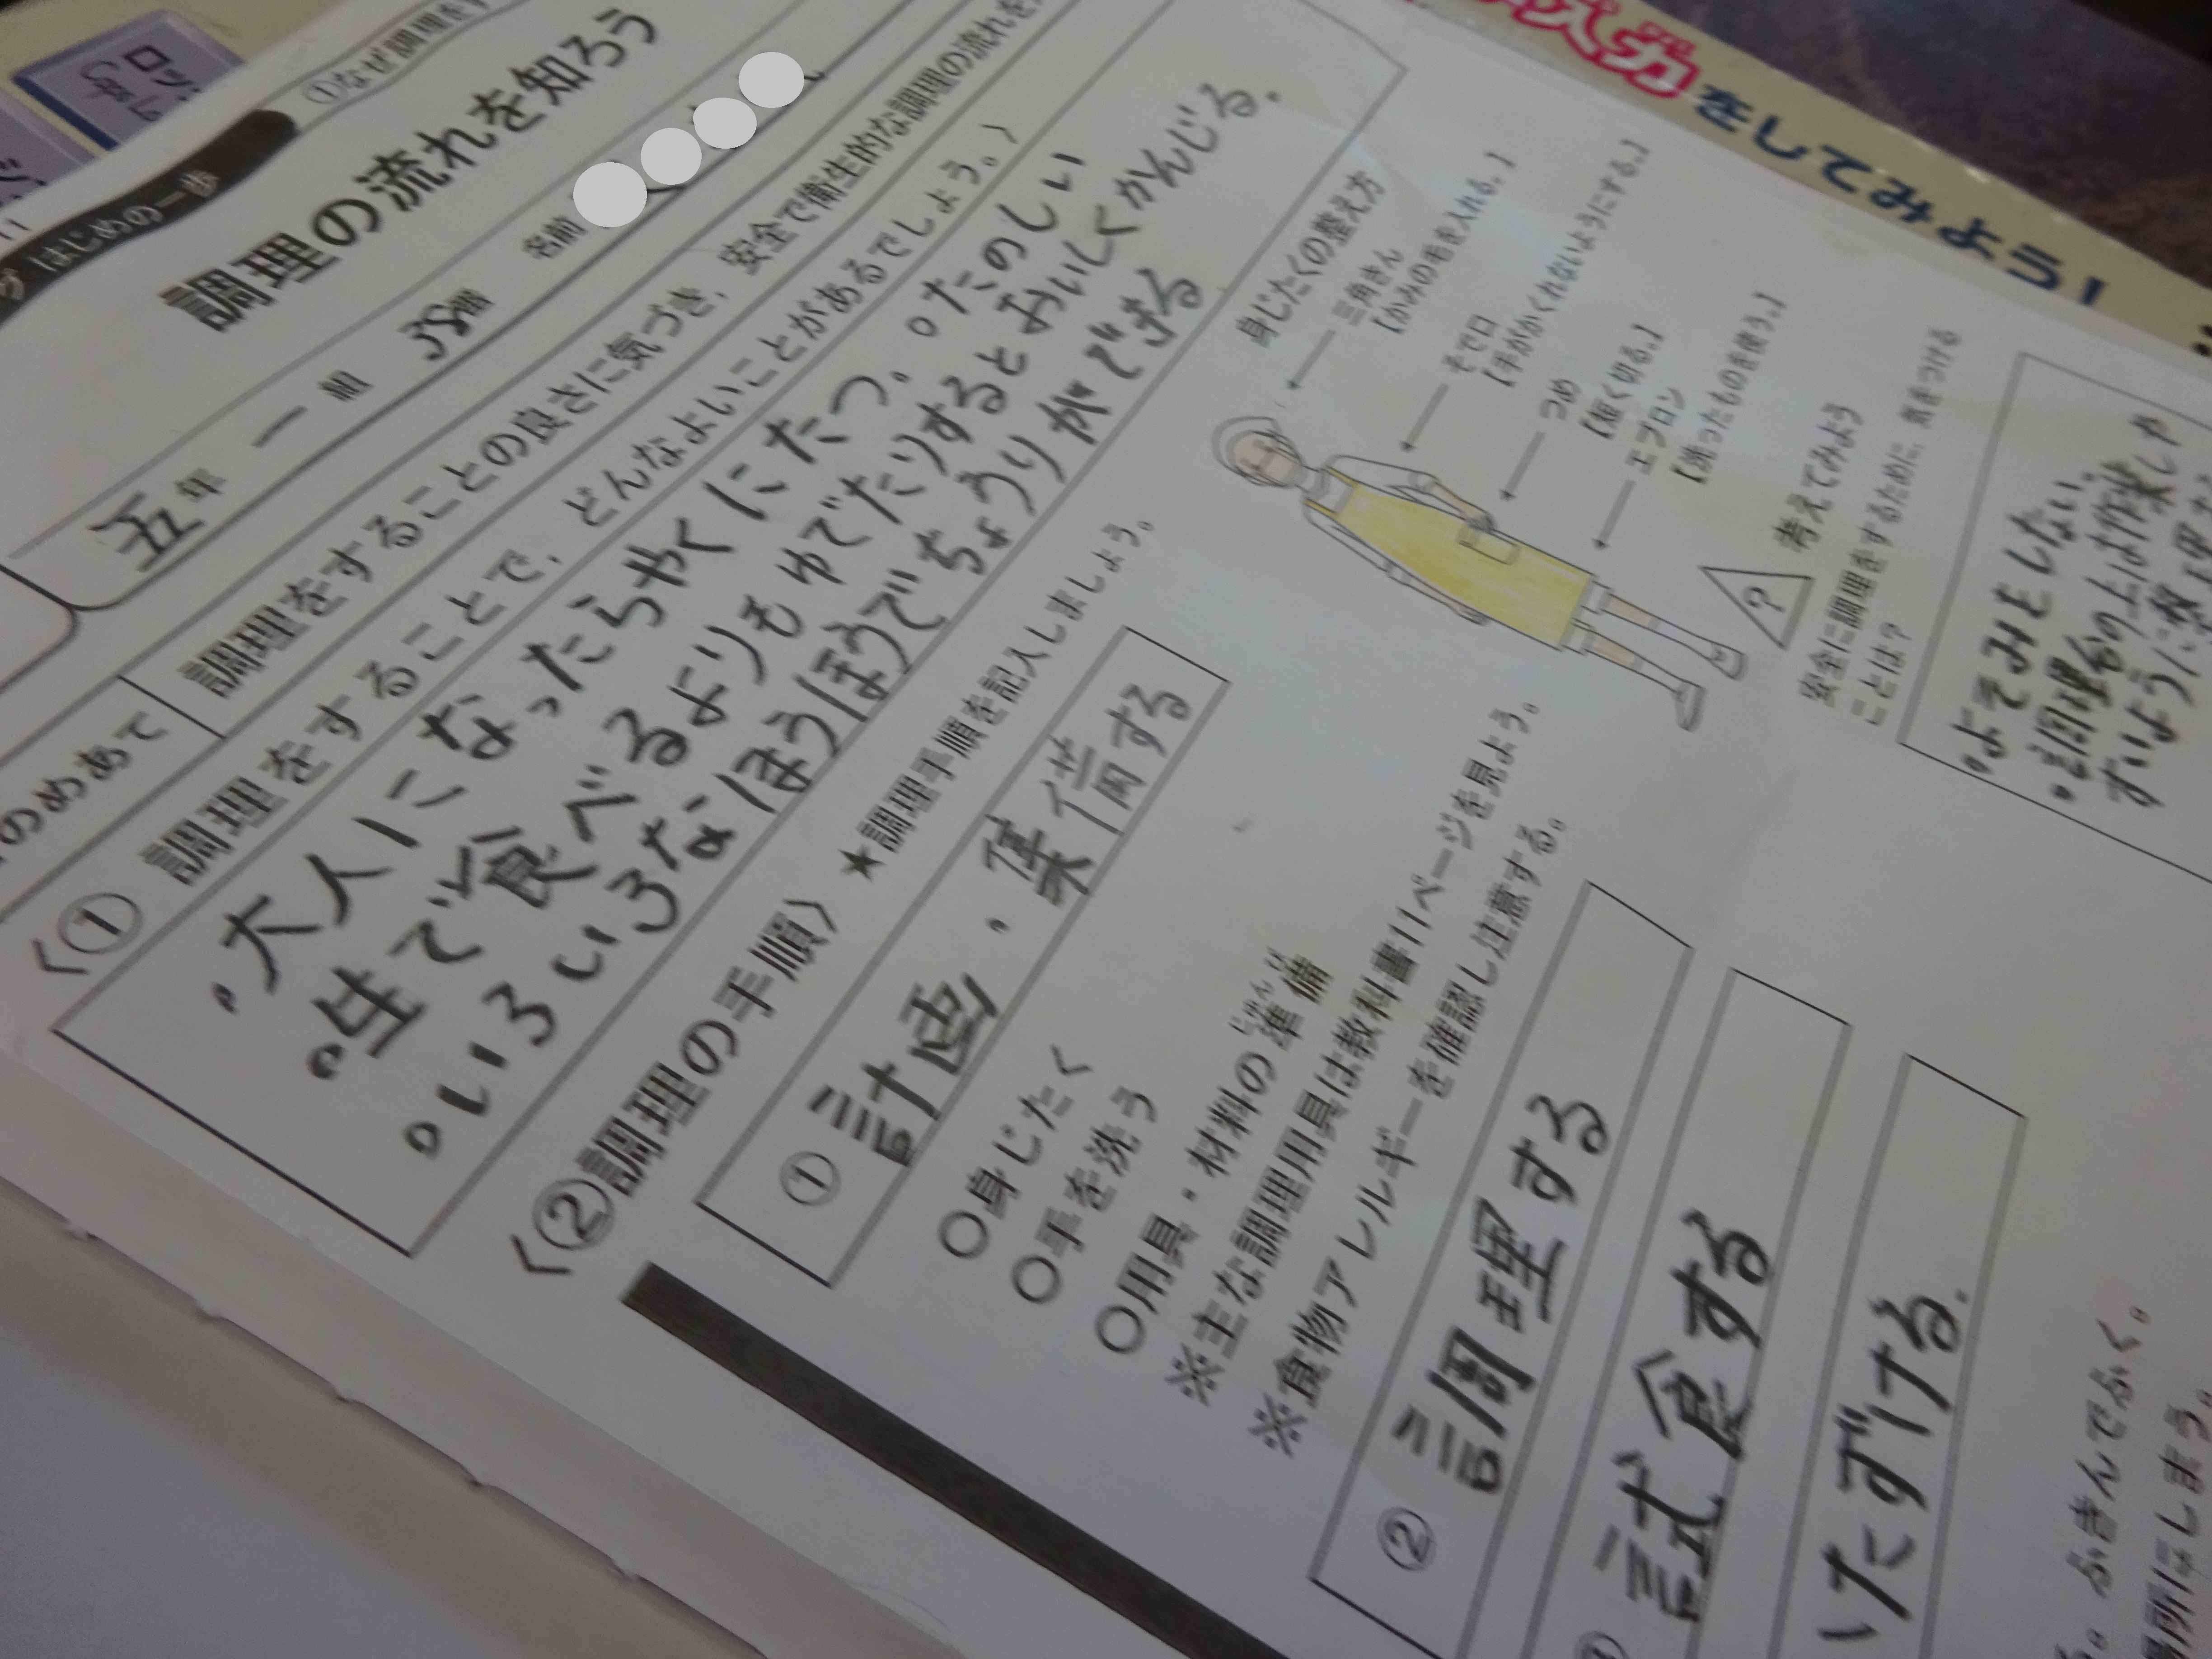 をしてみよう!
はじめの一歩
①なぜ調理をす
調理の流れを知ろう
五年 一組 38番 名前
のめあて
調理をすることの良さに気づき、安全で衛生的な調理の流れを
〈① 調理をすることで、どんなよいことがあるでしょう。〉
・大人になったらやくにたつ。 ・たのしい
・生で食べるよりもゆでたりするとおいしくかんじる。
・いろいろなほうほうでちょうりができる
〈②調理の手順〉 ★調理手順を記入しましょう。
① 計画・準備する
○身じたく
○手を洗う
○用具・材料の準備
じゅんび
※主な調理用具は教科書11ページを見よう。
※食物アレルギーを確認し注意する。
身じたくの整え方
三角きん
【かみの毛を入れる。】
そで口
【手がかくれないようにする。】
つめ
【短く切る。】
エプロン
【洗ったものを使う。】
? 考えてみよう
安全に調理をするために、気をつける
ことは?
・よそみをしない。
・調理台の上は作業しや
すいように
② 調理する
試食する
たずける。
ふきんでふく。
場所にしまう。